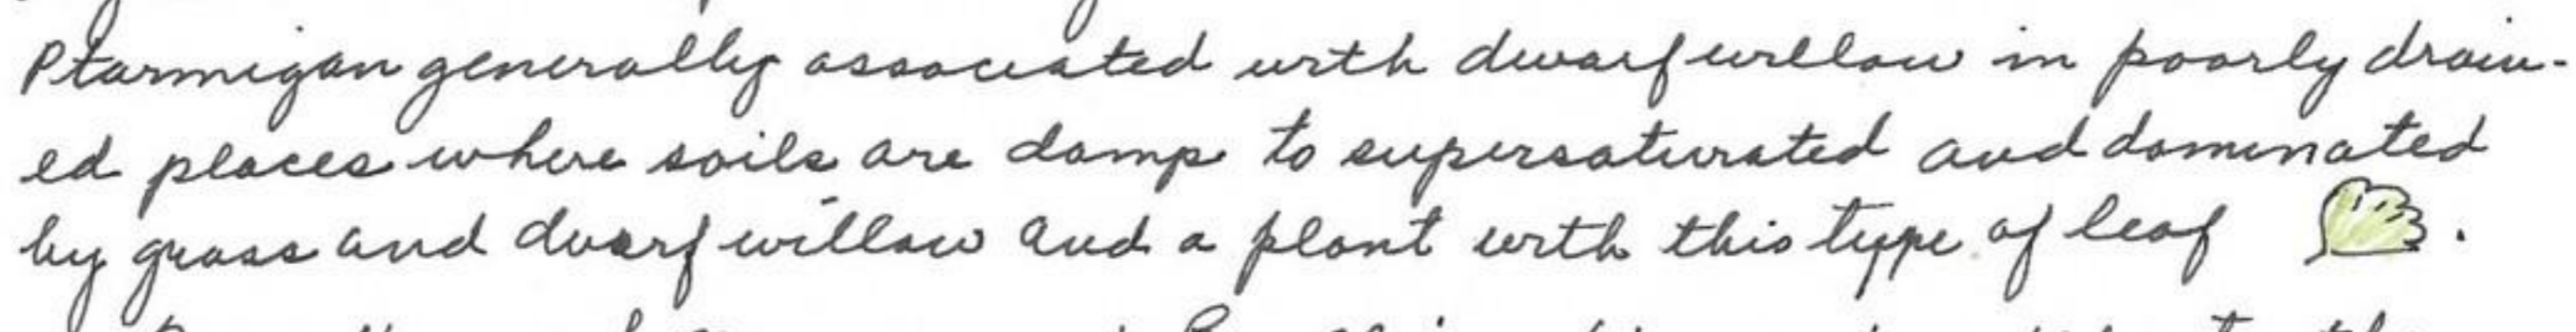 Ptarmigan generally associated with dwarf willow in poorly drain-
ed places where soils are damp to supersaturated and dominated
by grass and dwarf willow and a plant with this type of leaf .